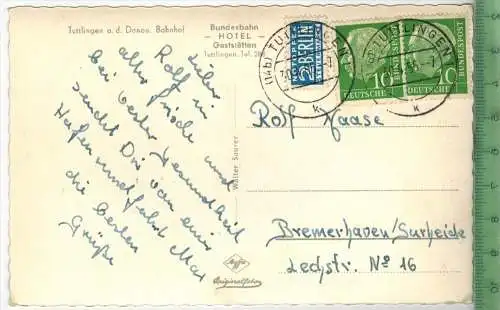 Tuttlingen a. d. Donau. Bahnhof
Bundesbahn
– HOTEL –
Gaststätten
Tuttlingen, Tel.
Lieber
Rolf in
alter Frische und
bei bester Gesundheit
sendet Dir von einer
Hafenrundfahrt Max
die besten
Grüße
Walter Saurer
Agfa
Originalfoto
NOTOPFER
2 BERLIN
STEUERMARKE
(14b) TUTTLINGEN
TUTTLINGEN
10
DEUTSCHE
BUNDESPOST
10
DEUTSCHE
BUNDESPOST
Rolf Haase
Bremerhaven/Surheide
Lechstr. No 16